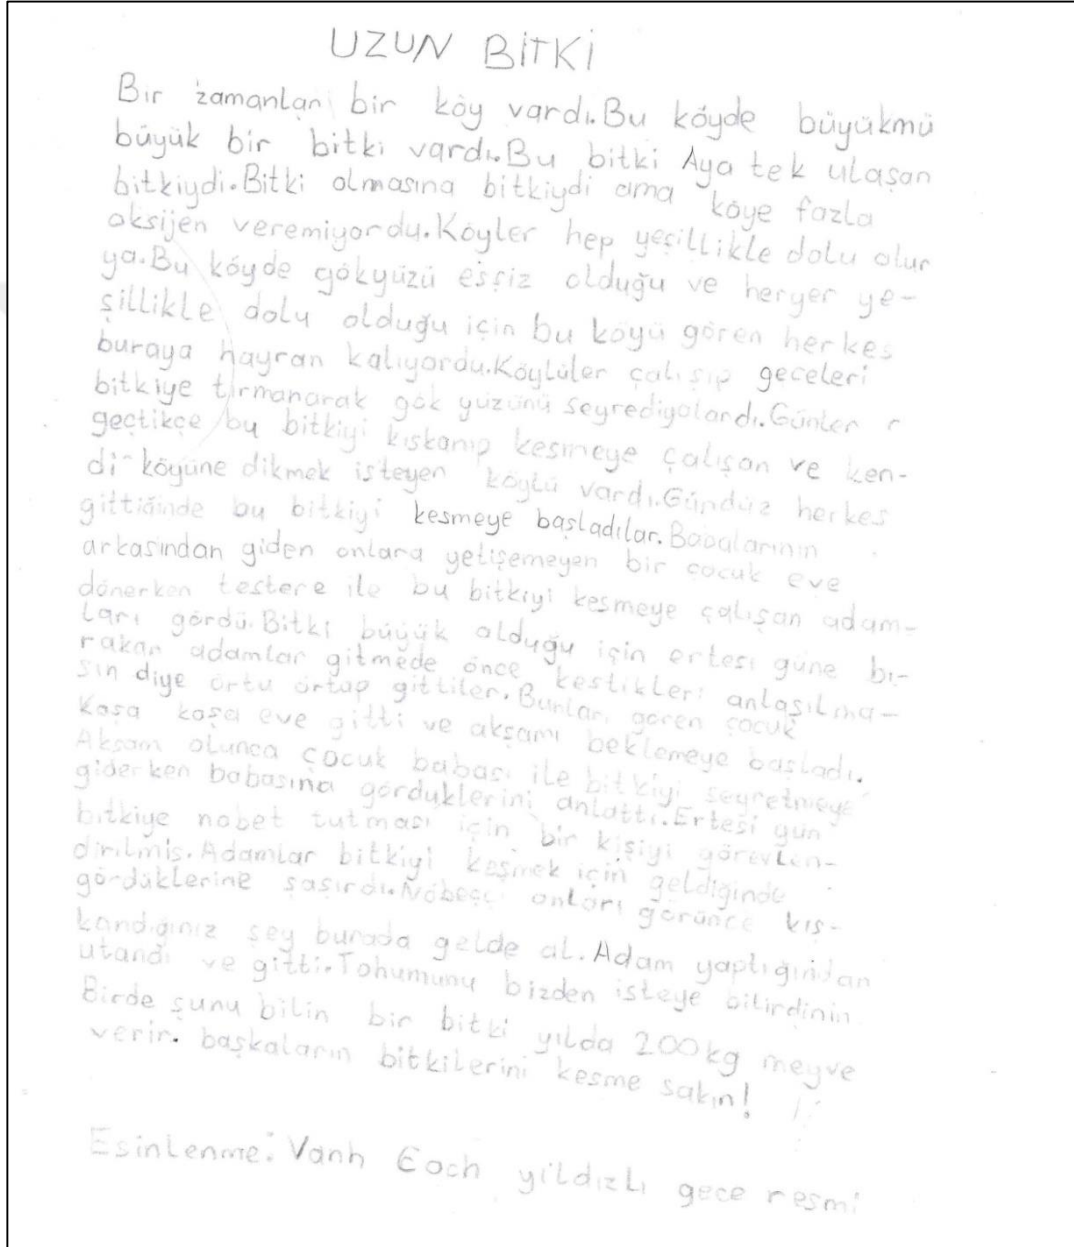 UZUN BİTKİ
Bir zamanlar bir köy vardı.Bu köyde büyükmü
büyük bir bitki vardı.Bu bitki Aya tek ulaşan
bitkiydi.Bitki olmasına bitkiydi ama köye fazla
oksijen veremiyordu.Köyler hep yeşillikle dolu olur
ya.Bu köyde gökyüzü eşsiz olduğu ve heryer ye-
şillikle dolu olduğu için bu köyü gören herkes
buraya hayran kalıyordu.Köylüler çalışıp geceleri
bitkiye tırmanarak gök yüzünü seyrediyolardı.Günler
geçtikçe bu bitkiyi kıskanıp kesmeye çalışan ve ken-
di köyüne dikmek isteyen köylü vardı.Gündüz herkes
gittiğinde bu bitkiyi kesmeye başladılar.Babalarının
arkasından giden onlara yetişemeyen bir çocuk eve
dönerken testere ile bu bitkiyi kesmeye çalışan adam-
ları gördü.Bitki büyük olduğu için ertesi güne bı-
rakan adamlar gitmede önce kestikleri anlaşılma-
sın diye örtü örtüp gittiler.Bunları gören çocuk
Koşa koşa eve gitti ve akşamı beklemeye başladı.
Akşam olunca çocuk babası ile bitkiyi seyretmeye
giderken babasına gördüklerini anlattı.Ertesi gün
bitkiye nöbet tutması için bir kişiyi görevlen-
dirilmiş.Adamlar bitkiyi kesmek için geldiğinde
gördüklerine şaşırdı.Nöbetçi onları görünce kıs-
kandığınız şey burada gelde al.Adam yaptığından
utandı ve gitti.Tohumunu bizden isteye bilirdinin
Birde şunu bilin bir bitki yılda 200kg meyve
verir. başkaların bitkilerini kesme sakın!
Esinlenme: Vanh Goch yıldızlı gece resmi